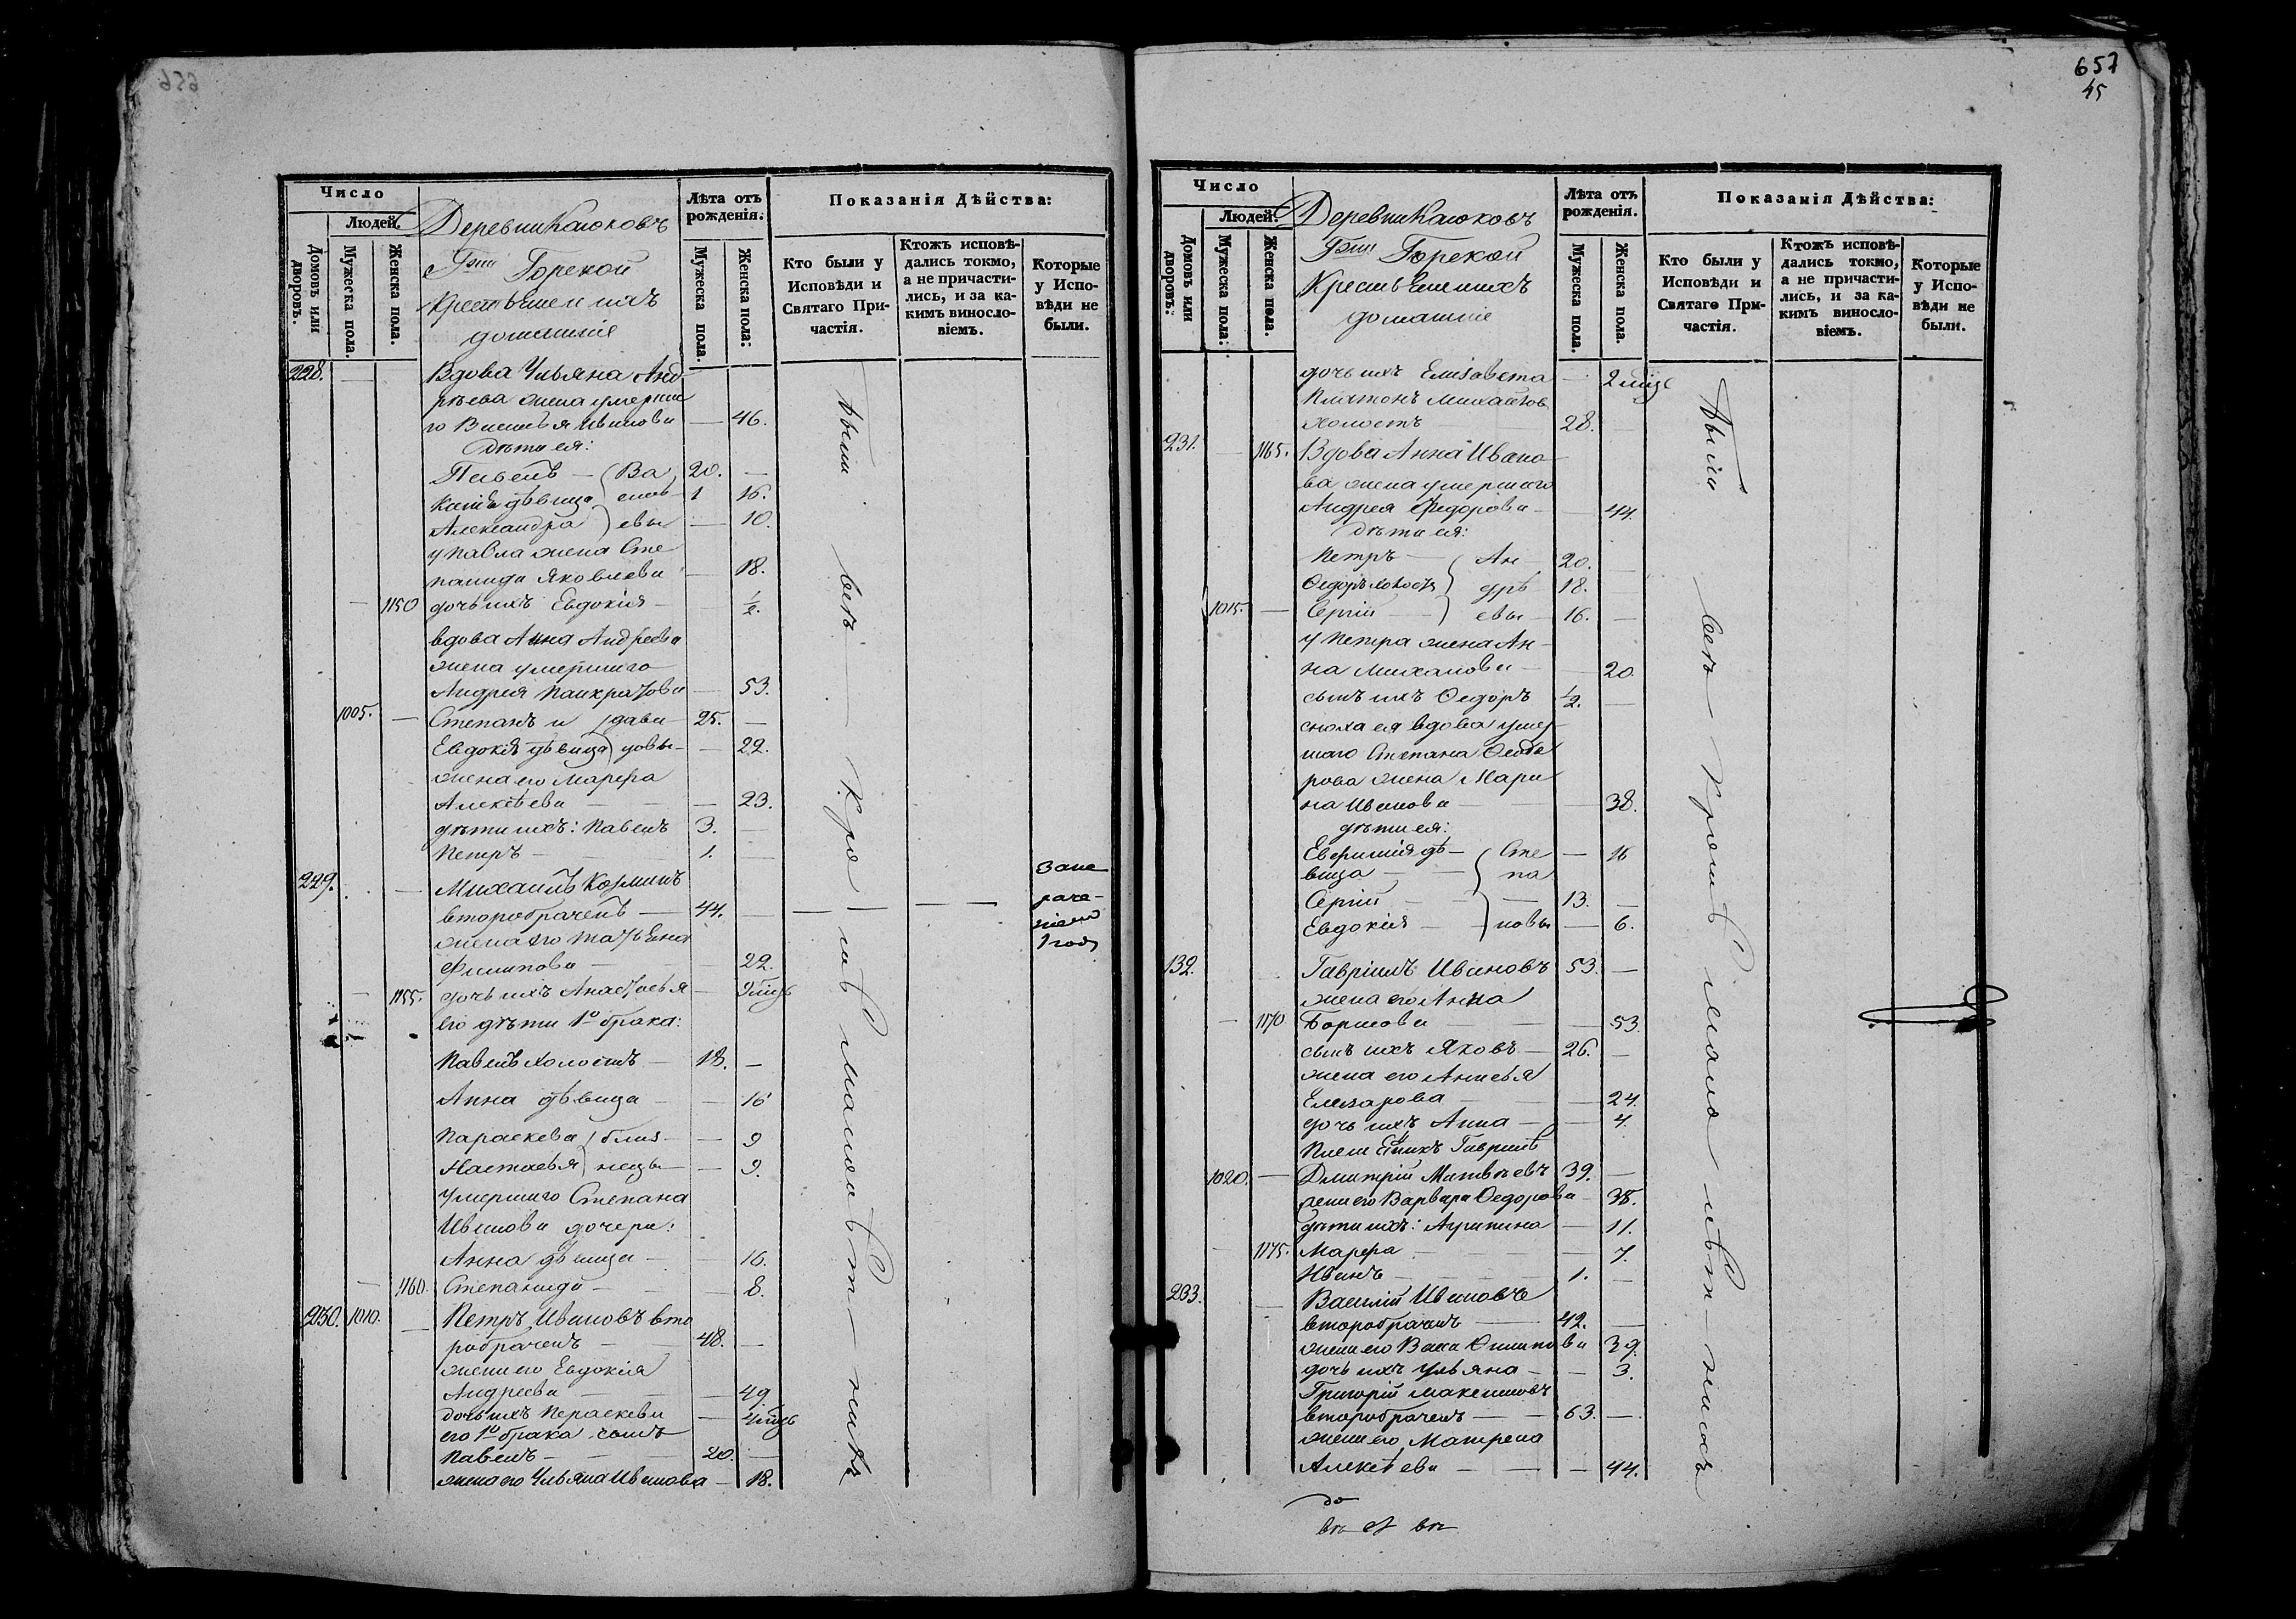 657
45
Число
Людей.
Домовъ или дворовъ.
Мужеска пола.
Женска пола.
Деревни Каюковъ
Гжи Горской
Крестьяне и ихъ
домашніе
Лѣта отъ рожденія.
Мужеска пола.
Женска пола:
Показанія Дѣйства:
Кто были у Исповѣди и Святаго Причастія.
Ктожъ исповѣдались токмо, а не причастились, и за какимъ винословіемъ.
Которые у Исповѣди не были.
228. — Вдова Ульяна Анд
рѣева жена умерша
го Василья Иванова — 46.
Дѣти ея:
Павелъ — (Ва 20. —
дѣвица) сильъ 16.
Александра) евы — 10.
у Павла жена Сте
панида Яковлева — 18.
— 1150 дочь ихъ Евдокія — ½.
вдова Анна Андреева
жена умершаго
Андрея Панкратова — 53.
1005. — Степанъ и давы 25. —
Евдокія дѣвица) довы — 22.
жена его Марѳа
Алексѣева — 23.
дѣти ихъ: Павелъ 3. —
Петръ — 1. —
229. — Михаилъ Козминъ
второбраченъ — 44. —
жена его Татьяна
Филипова — 22.
— 1155. дочь ихъ Анастасья — 9 мцъ
его дѣти 1го брака:
Павелъ холостъ — 18. —
Анна дѣвица — 16
Параскева) близ — 9
Настасья) нецы — 9.
умершаго Степана
Иванова дочери:
Анна дѣвица — 16.
— 1160. Степанида — 8.
230. 1010. — Петръ Ивановъ вто
робраченъ — 48. —
жена его Евдокія
Андреева — 49
дочь ихъ Параскева — 4 мцъ
его 1го брака сынъ
Павелъ — 20. —
жена его Ульяна Иванова — 18.
были всѣ кромѣ малолѣт-нихъ
Число
Людей.
Домовъ или дворовъ:
Мужеска пола:
Женска пола.
Деревни Каюковъ
Гжи Горской
Крестьяне и ихъ
домашніе
Лѣта отъ рожденія.
Мужеска пола.
Женска пола.
Показанія Дѣйства:
Кто были у Исповѣди и Святаго Причастія.
Ктожъ исповѣдались токмо, а не причастились, и за какимъ винословіемъ.
Которые у Исповѣди не были.
дочь ихъ Елисавета — 2 мцъ
Платонъ Михайлов
холостъ 28. —
231. — 1165. Вдова Анна Ивано
ва жена умершаго
Андрея Федорова — 44.
дѣти ея:
Петръ — (Ан 20. —
Ѳедоръ холостъ) дрѣ 18. —
1015. — Сергій —) евы 16. —
у Петра жена Ан
на Михайлова — 20.
сынъ ихъ Ѳедоръ ½. —
сноха ея вдова умер
шаго Степана Ѳедо
рова жена Мари
на Иванова — 38.
дѣти ея:
дѣ — (Сте — 16
вица — па
Сергій — 13. —
Евдокія — новы — 6.
132. Гавріилъ Ивановъ 53. —
жена его Анна
— 1170 Борисова — 53.
сынъ ихъ Яковъ — 26. —
жена его Анисья
Елизарова — 24.
дочь ихъ Анна — 4.
Гавріилъ
1020. — Дмитрій Матвѣевъ 39. —
жена его Варвара Ѳедорова — 38.
дѣти ихъ: Агрипина — 11.
— 1175. Марѳа — 7.
Иванъ — 1. —
233. — Василій Ивановъ
второбраченъ — 42. —
жена его Васса Филипова 39.
дочь ихъ Ульяна — 3.
Григорій Максимовъ
второбраченъ — 63. —
жена его Матрена
Алексѣева — 44.
были всѣ кромѣ малолѣт-нихъ